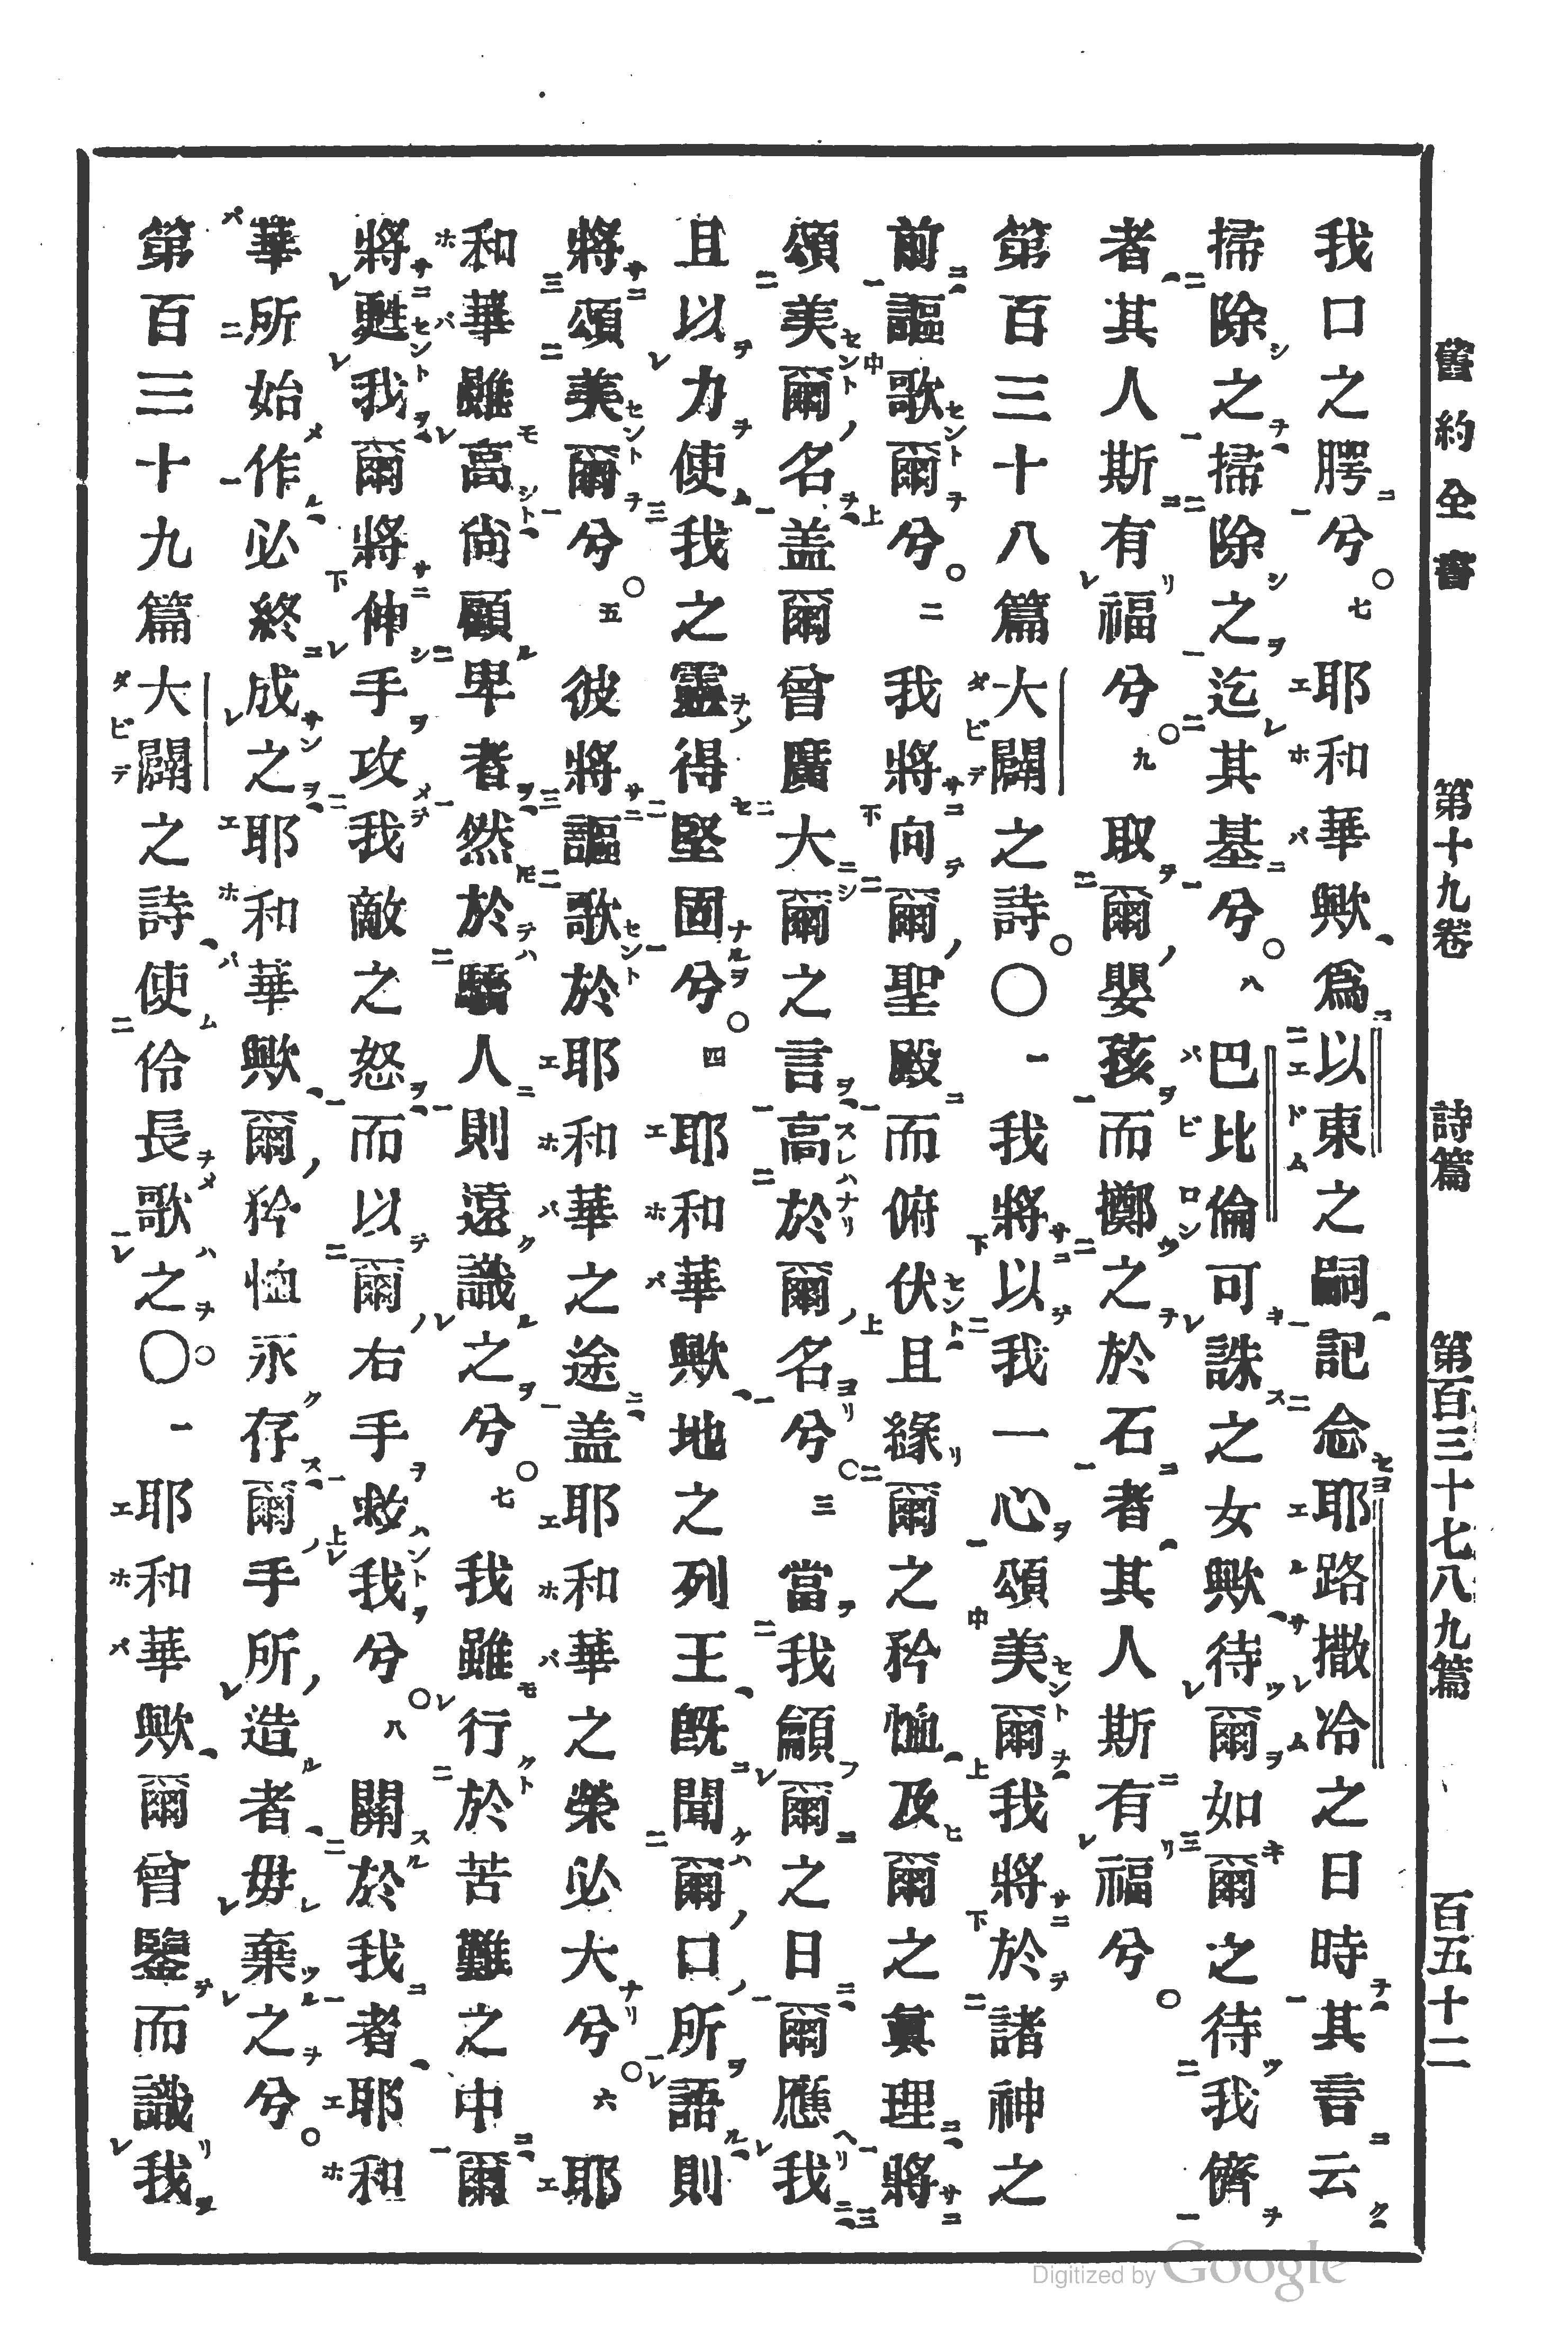 舊約全書 第十九卷 詩篇 第百三十七八九篇 百五十二
我口之腭兮。七 耶和華歟爲以東之嗣記念耶路撒冷之日時其言云
掃除之掃除之迄其基兮。八 巴比倫可誅之女歟待爾如爾之待我儕
者其人斯有福兮。九 取爾嬰孩而擲之於石者其人斯有福兮。
第百三十八篇 大闢之詩。〇 一 我將以我一心頌美爾我將於諸神之
前謳歌爾兮。二 我將向爾聖殿而俯伏且緣爾之矜恤及爾之眞理將
頌美爾名盖爾曾廣大爾之言高於爾名兮。三 當我龥爾之日爾應我
且以力使我之靈得堅固兮。四 耶和華歟地之列王旣聞爾口所語則
將頌美爾兮。五 彼將謳歌於耶和華之途盖耶和華之榮必大兮。六 耶
和華雖高尙顧卑者然於驕人則遠識之兮。七 我雖行於苦難之中爾
將甦我爾將伸手攻我敵之怒而以爾右手救我兮。八 關於我者耶和
華所始作必終成之耶和華歟爾矜恤永存爾手所造者毋棄之兮。
第百三十九篇 大闢之詩使伶長歌之。〇 一 耶和華歟爾曾鑒而識我
Digitized by Google